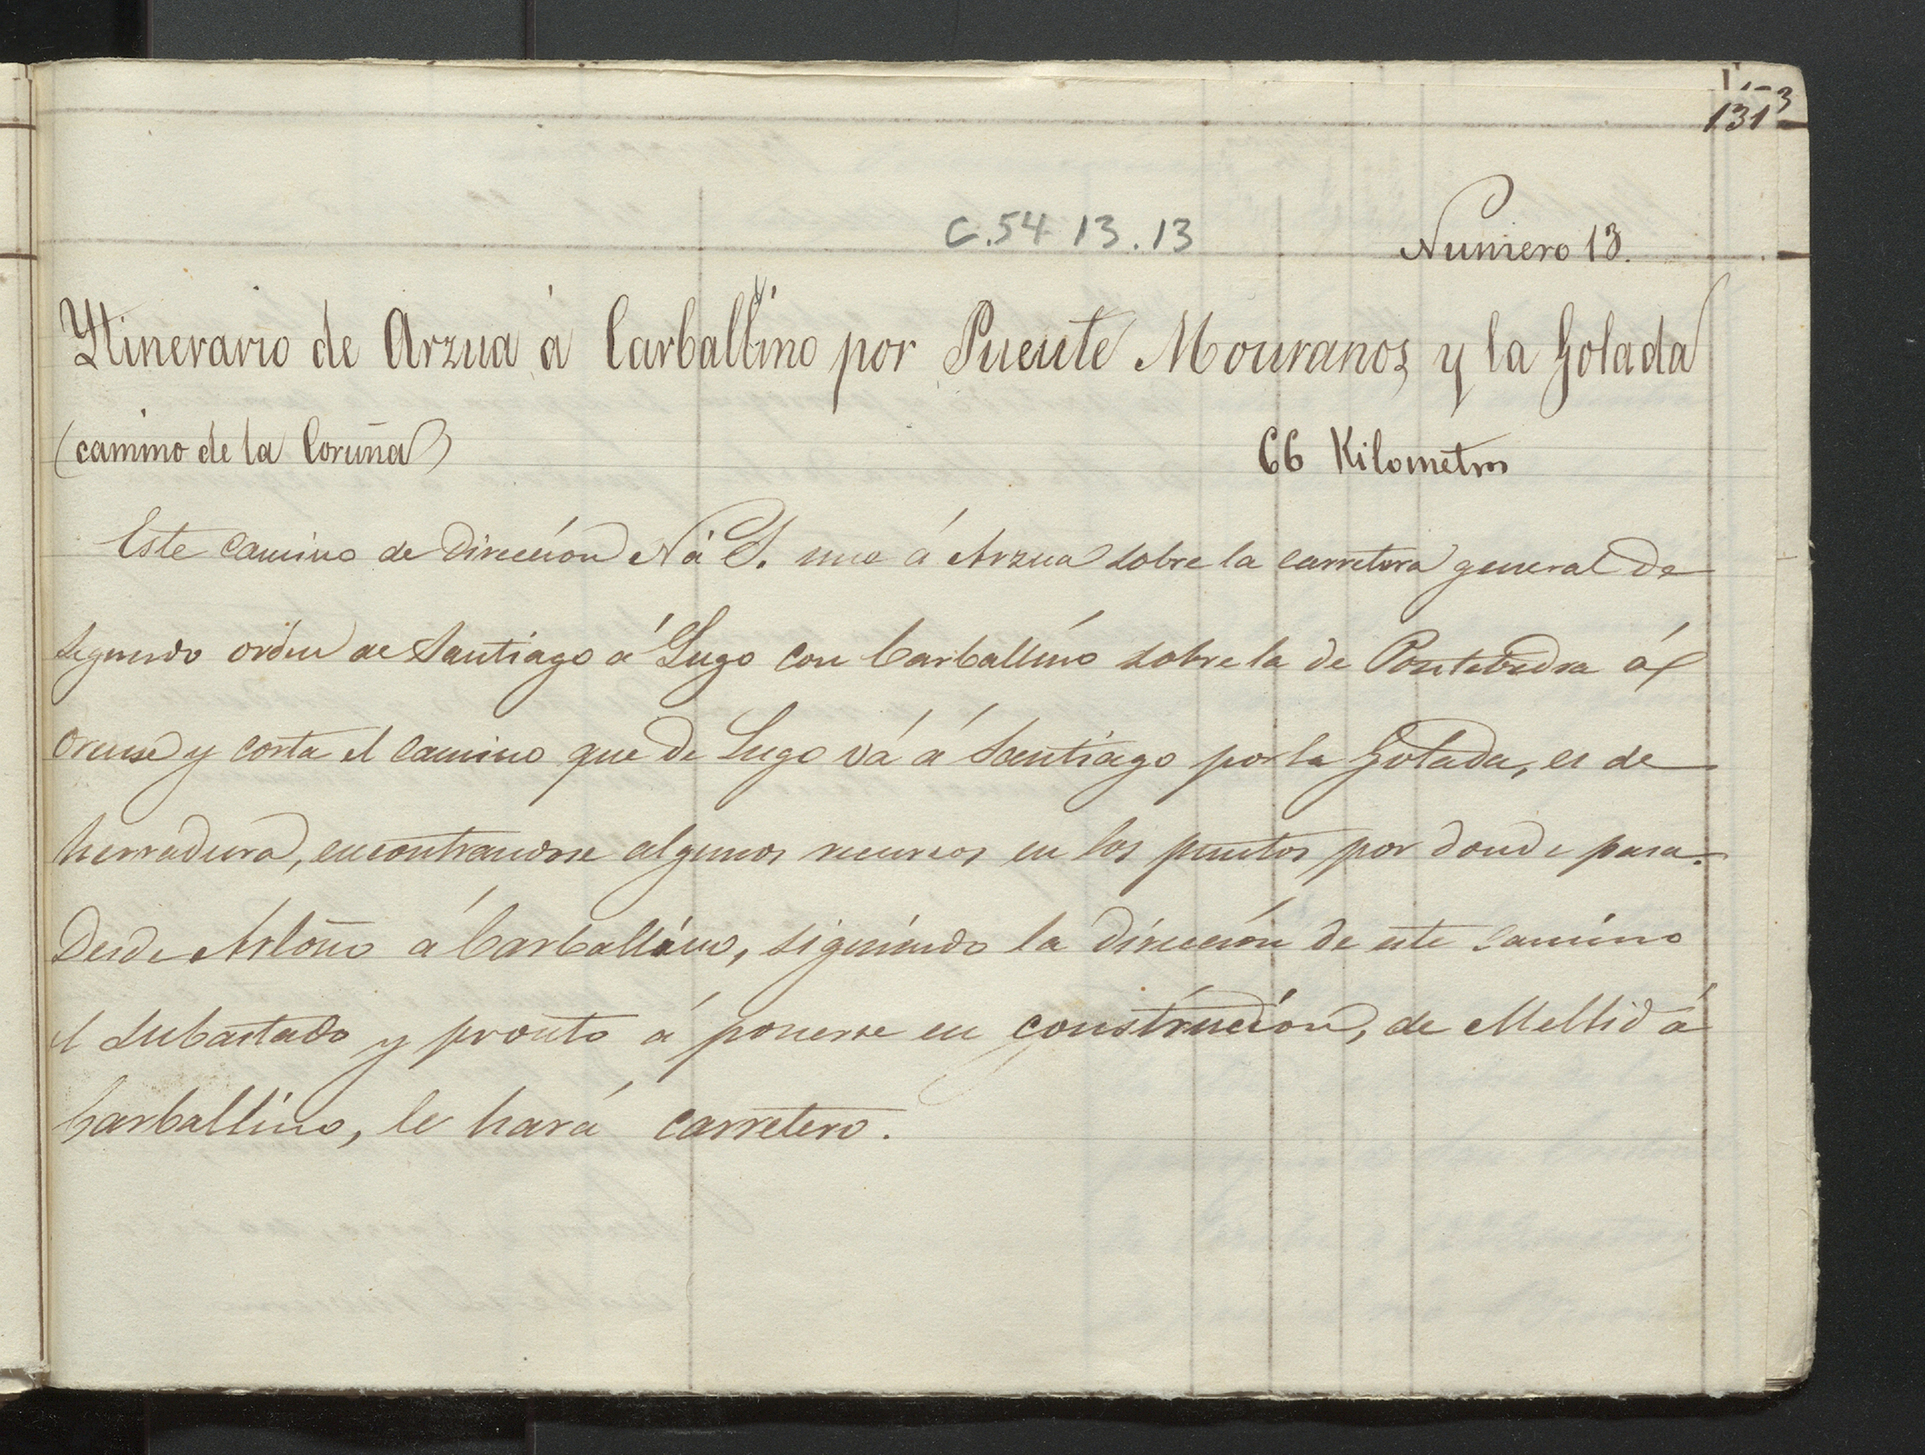 131
C.54 13.13
Numero 13.
Ytinerario de Arzua á Carballino por Puente Mouranos y la Golada
(camino de la Coruña)
66 Kilometros
Este camino de direccion N á S. une á Arzua sobre la carretera general de
segundo orden de Santiago á Lugo con Carballino sobre la de Pontebedra á
Orense y corta el camino que de Lugo vá á Santiago por la Golada, es de
herradura, encontrandose algunos recursos en los puntos por donde pasa.
Desde Arloño á Carballino, siguiendo la direccion de este camino
el subastado y pronto á ponerse en construcion, de Mellid á
Carballino, le hará carretero.